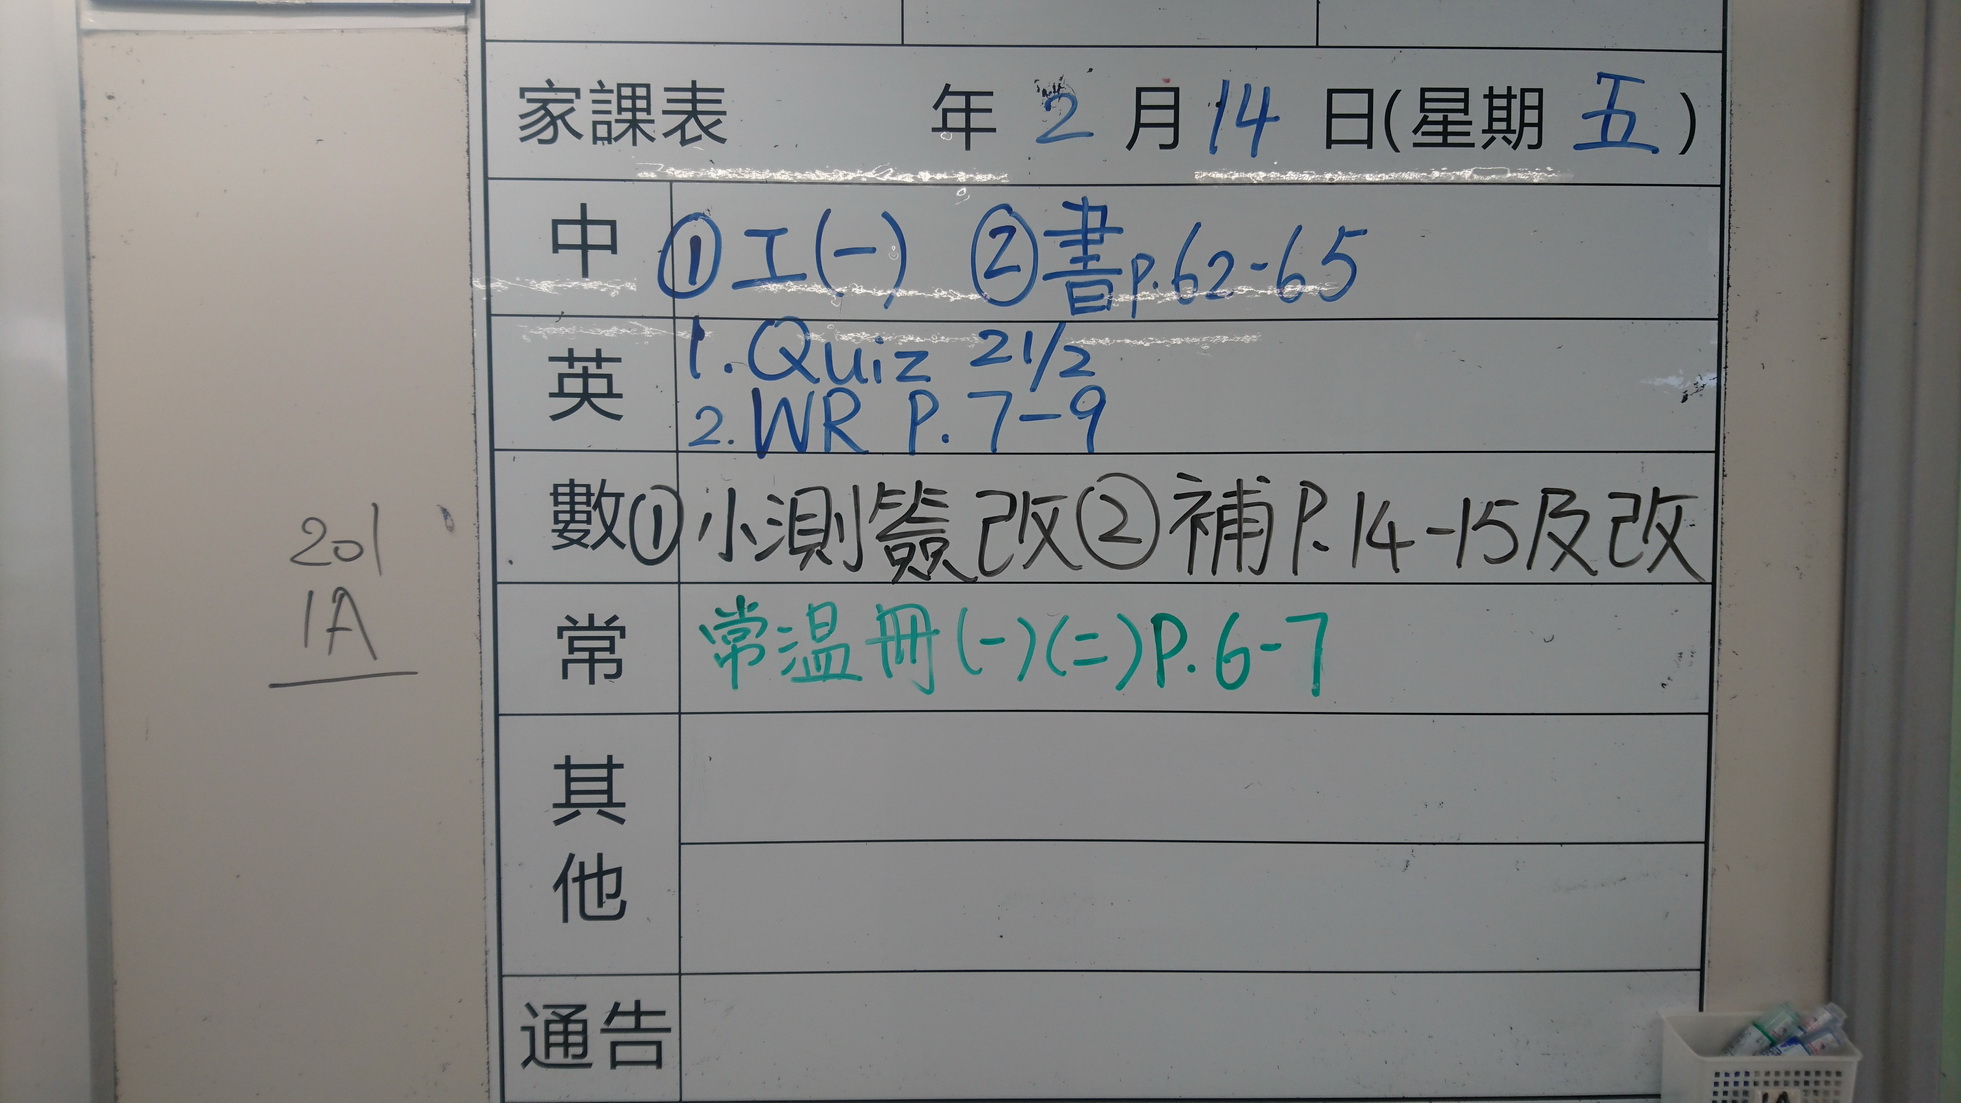 家課表 年 2 月 14 日(星期 五)
中 ① 工(一) ② 書p.62-65
英 1. Quiz 21/2
2. WR P. 7-9
數 ① 小測簽改 ② 補 P. 14-15及改
常 常温冊(一)(二)P. 6-7
其他
通告
201
1A